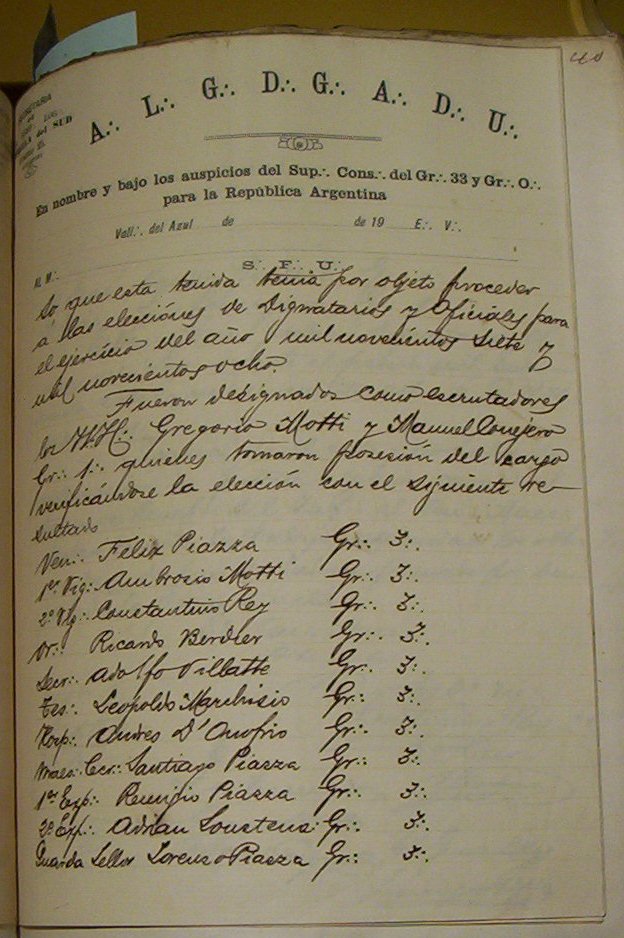 40
A∴ L∴ G∴ D∴ G∴ A∴ D∴ U∴
del SUD
En nombre y bajo los auspicios del Sup∴ Cons∴ del Gr∴ 33 y Gr∴ O∴
para la República Argentina
Vall∴ del Azul de de 19 E∴ V∴
AL M∴
S∴ F∴ U∴
lo que esta tenida tenia por objeto proceder
á las elecciónes de Dignatarios y Oficiales para
el ejercicio del año mil novecientos siete y
mil novecientos ocho.
Fueron designados como escrutadores
los HH∴ Gregorio Motti y Manuel Conejero
Gr∴ 1∴ quienes tomaron posesión del cargo
verificándose la elección con el siguiente re-
sultado
Ven∴ Felix Piazza Gr∴ 3∴
1er Vig∴ Ambrosio Motti Gr∴ 3∴
2o Vig∴ Constantino Rey Gr∴ 3∴
Or∴ Ricardo Berdier Gr∴ 3∴
Secr∴ Adolfo Villatte Gr∴ 3∴
Tes∴ Leopoldo Marchisio Gr∴ 3∴
Hosp∴ Andres D'Onofrio Gr∴ 3∴
Maes∴ Cer∴ Santiago Piazza Gr∴ 3∴
1er Exp∴ Remigio Piazza Gr∴ 3∴
2o Exp∴ Adrian Loustens∴ Gr∴ 3∴
Guarda Sellos Lorenzo Piazza Gr∴ 3∴